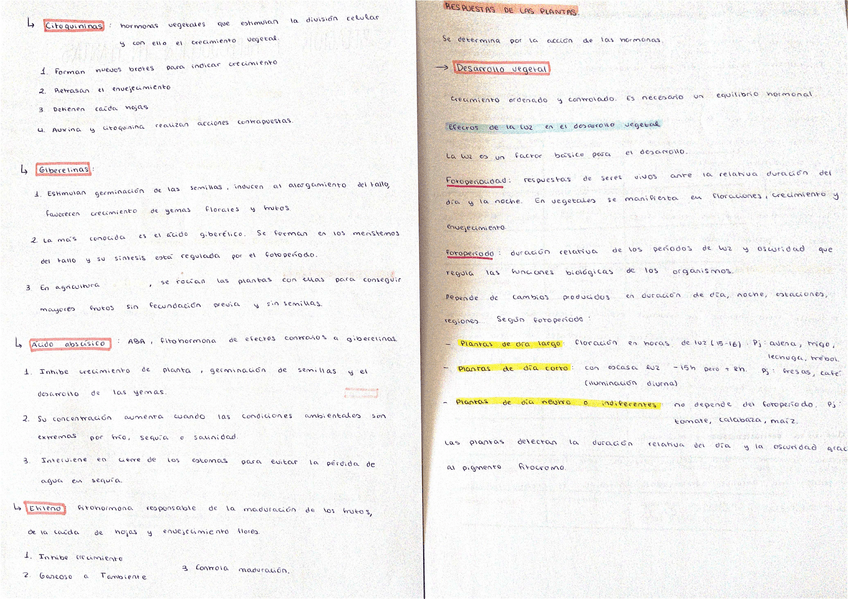 Citoquininas: hormonas vegetales que estimulan la división celular
y con ello el crecimiento vegetal.
1. Forman nuevos brotes para indicar crecimiento
2. Retrasan el envejecimiento
3 Detienen caída hojas
4. Auxina y citoquinina realizan acciones contrapuestas.
Giberelinas:
1. Estimulan germinación de las semillas, inducen al alargamiento del tallo,
favorecen crecimiento de yemas florales y frutos.
2. La más conocida es el ácido giberélico. Se forman en los meristemos
del tallo y su síntesis está regulada por el fotoperíodo.
3. En agricultura , se rocían las plantas con ellas para conseguir
mayores frutos sin fecundación previa y sin semillas.
Ácido abscísico: ABA, fitohormona de efectos contrarios a giberelinas
1. Inhibe crecimiento de planta, germinación de semillas y el
desarrollo de las yemas.
2. Su concentración aumenta cuando las condiciones ambientales son
extremas por frío, sequía o salinidad.
3. Interviene en cierre de los estomas para evitar la pérdida de
agua en sequía.
Etileno fitohormona responsable de la maduración de los frutos,
de la caída de hojas y envejecimiento flores
1. Inhibe crecimiento
2. Gaseoso a Tambiente 3 Controla maduración.
RESPUESTAS DE LAS PLANTAS.
Se determina por la acción de las hormonas.
→ Desarrollo vegetal
Crecimiento ordenado y controlado. Es necesario un equilibrio hormonal
Efectos de la luz en el desarrollo vegetal
La luz es un factor básico para el desarrollo.
Fotoperiocidad: respuestas de seres vivos ante la relativa duración del
día y la noche. En vegetales se manifiesta en floraciones, crecimiento y
envejecimiento.
Fotoperíodo: duración relativa de los períodos de luz y oscuridad que
regula las funciones biológicas de los organismos.
Depende de cambios producidos en duración de día, noche, estaciones,
regiones. Según fotoperíodo:
- Plantas de día largo floración en horas de luz (15-16). Pj: avena, trigo,
lechuga, trébol.
- Plantas de día corto: con escasa luz -15h pero +8h. Pj: fresas, café
(iluminación diurna)
- Plantas de día neutro o indiferentes: no depende del fotoperíodo. Pj:
tomate, calabaza, maíz.
Las plantas detectan la duración relativa del día y la oscuridad grac
al pigmento fitocromo.